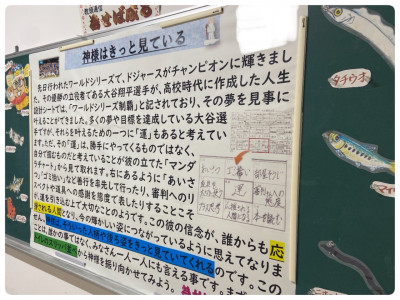 教頭通信
なせばなる
神様はきっと見ている
先日行われたワールドシリーズで、ドジャースがチャンピオンに輝きまし
た。その優勝の立役者である大谷翔平選手が、高校時代に作成した人生
設計シートでは、「ワールドシリーズ制覇」と記されており、その夢を見事に
叶えることができました。多くの夢や目標を達成している大谷選
手ですが、それらを叶えるための一つに「運」もあると考えてい
ます。ただ、その「運」は、勝手にやってくるものではなく、
自分で掴むものだと考えていることが彼の立てた「マンダ
ラチャート」から見て取れます。右にあるように「あいさ
つ」「ゴミ拾い」など善行を率先して行ったり、審判へのリ
スペクトや道具への感謝を態度で表したりすることこそ
が運を引き込む上で大切なことのようです。この彼の信念が、誰からも応
援される人間となり、今の輝かしい姿につながっているように思えてなりま
せん。
ことは、誰かの事ではなく、みなさん一人一人にも言える事です。まず
トイレのスリッパ
から神様を振り向かせてみよう。
あいさつ
ゴミ拾い
部屋そうじ
運
プラス思考
本を読む
タチウオ